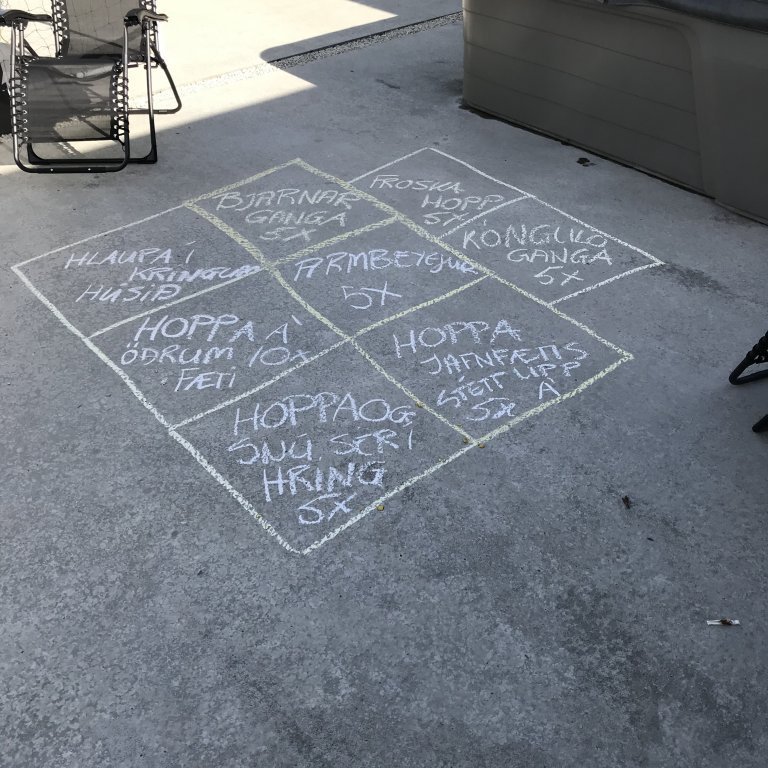 BJARNAR
GANGA
5X
FROSKA
HOPP
5X
KÓNGULÓ
GANGA
5X
HLAUPA Í
KRINGUM
HÚSIÐ
ARMBEYGJUR
5X
HOPPA Á
ÖÐRUM 10X
FÆTI
HOPPA
JAFNFÆTIS
STÉTT UPP
Á
5X
HOPPA OG
SNÚ SÉR Í
HRING
5X